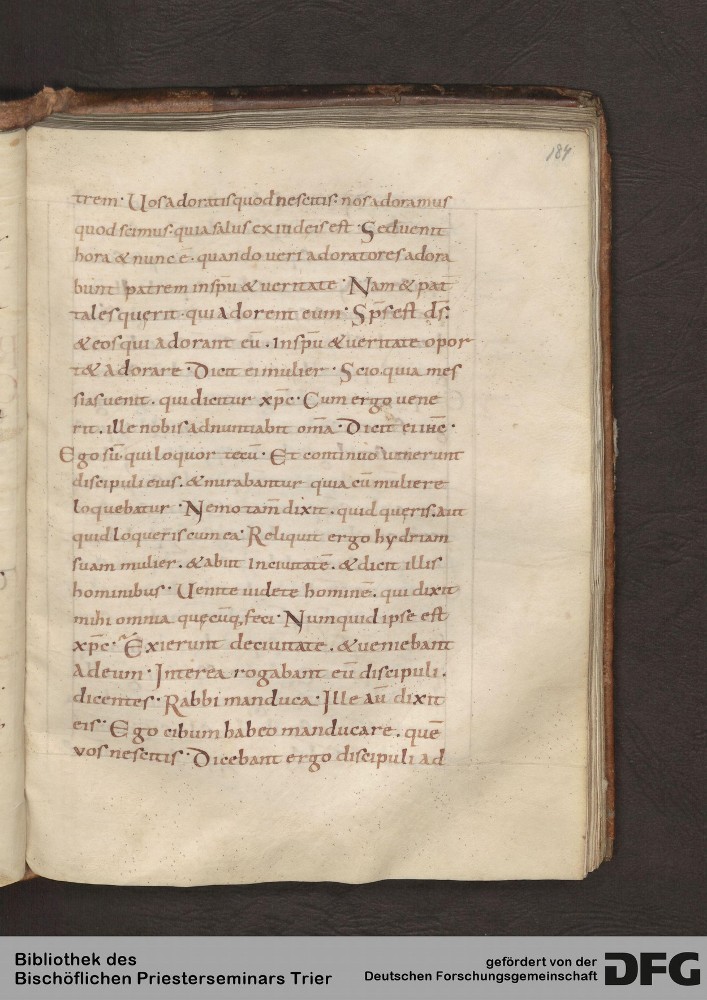 184
trem· Uos adoratis quod nescitis· nos adoramus
quod scimus· quia salus ex iudeis est· Sed uenit
hora & nunc ē· quando ueri adoratores adora
bunt patrem in spū & ueritate· Nam & pat̄
tales querit· qui adorent eum· Sp̄s est d̄s·
& eos qui adorant eū· in spū & ueritate opor
t& adorare· Dicit ei mulier· Scio quia mes
sias uenit· qui dicitur xp̄c· Cum ergo uene
rit· ille nobis adnuntiabit om̄a· Dicit ei ih̄c·
Ego sū· qui loquor tecū· Et continuo uenerunt
discipuli eius· & mirabantur quia cū muliere
loquebatur· Nemo tam̄ dixit· quid queris· aut
quid loqueris cum ea· Reliquit ergo hydriam
suam mulier· & abiit in ciuitatē· & dicit illis
hominibus· Uenite uidete hominē· qui dixit
mihi omnia quęcūq; feci· Numquid ipse est
xp̄c· Exierunt de ciuitate· & ueniebant
ad eum· Interea rogabant eū discipuli·
dicentes· Rabbi manduca· Ille aū dixit
eis· Ego cibum habeo manducare· quē
vos nescitis· Dicebant ergo discipuli ad
Bibliothek des
Bischöflichen Priesterseminars Trier
gefördert von der
Deutschen Forschungsgemeinschaft
DFG